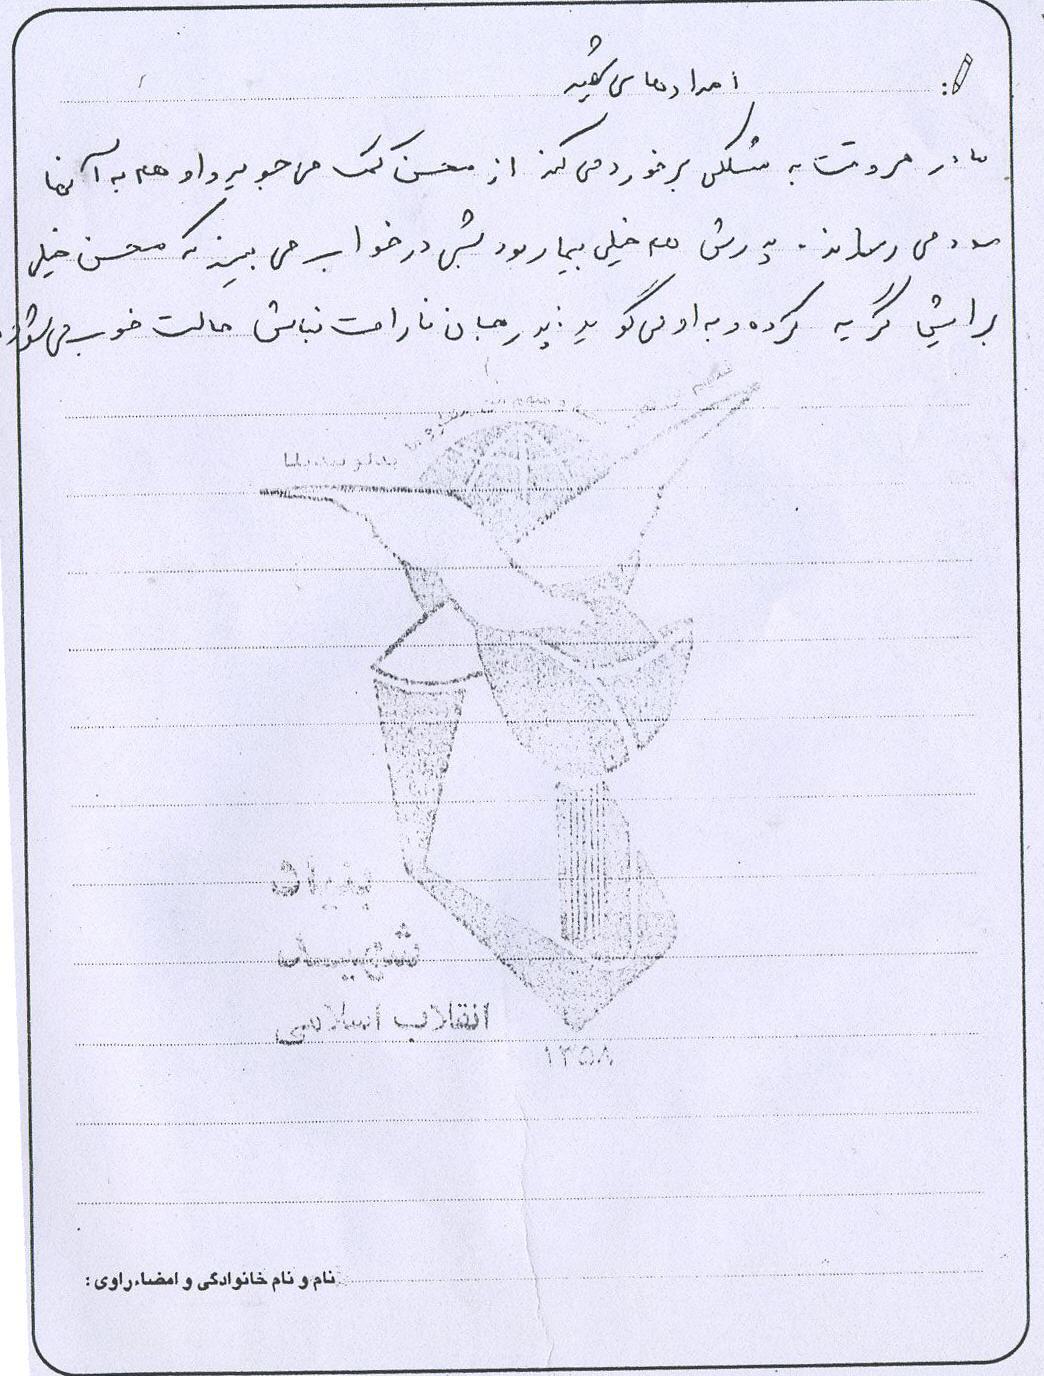 امدادهای شهید
مادر هر وقت به مشکلی برخورد می کند از محسن کمک می جوید و او هم به آنها
مدد می رساند. پدرش هم خیلی بیمار بود شبی در خواب می بیند که محسن خیلی
برایش گریه کرده و به او می گوید: پدر جان ناراحت نباش حالت خوب می شود.
بنیاد
شهید
انقلاب اسلامی
۱۳۵۸
نام و نام خانوادگی و امضاء راوی: